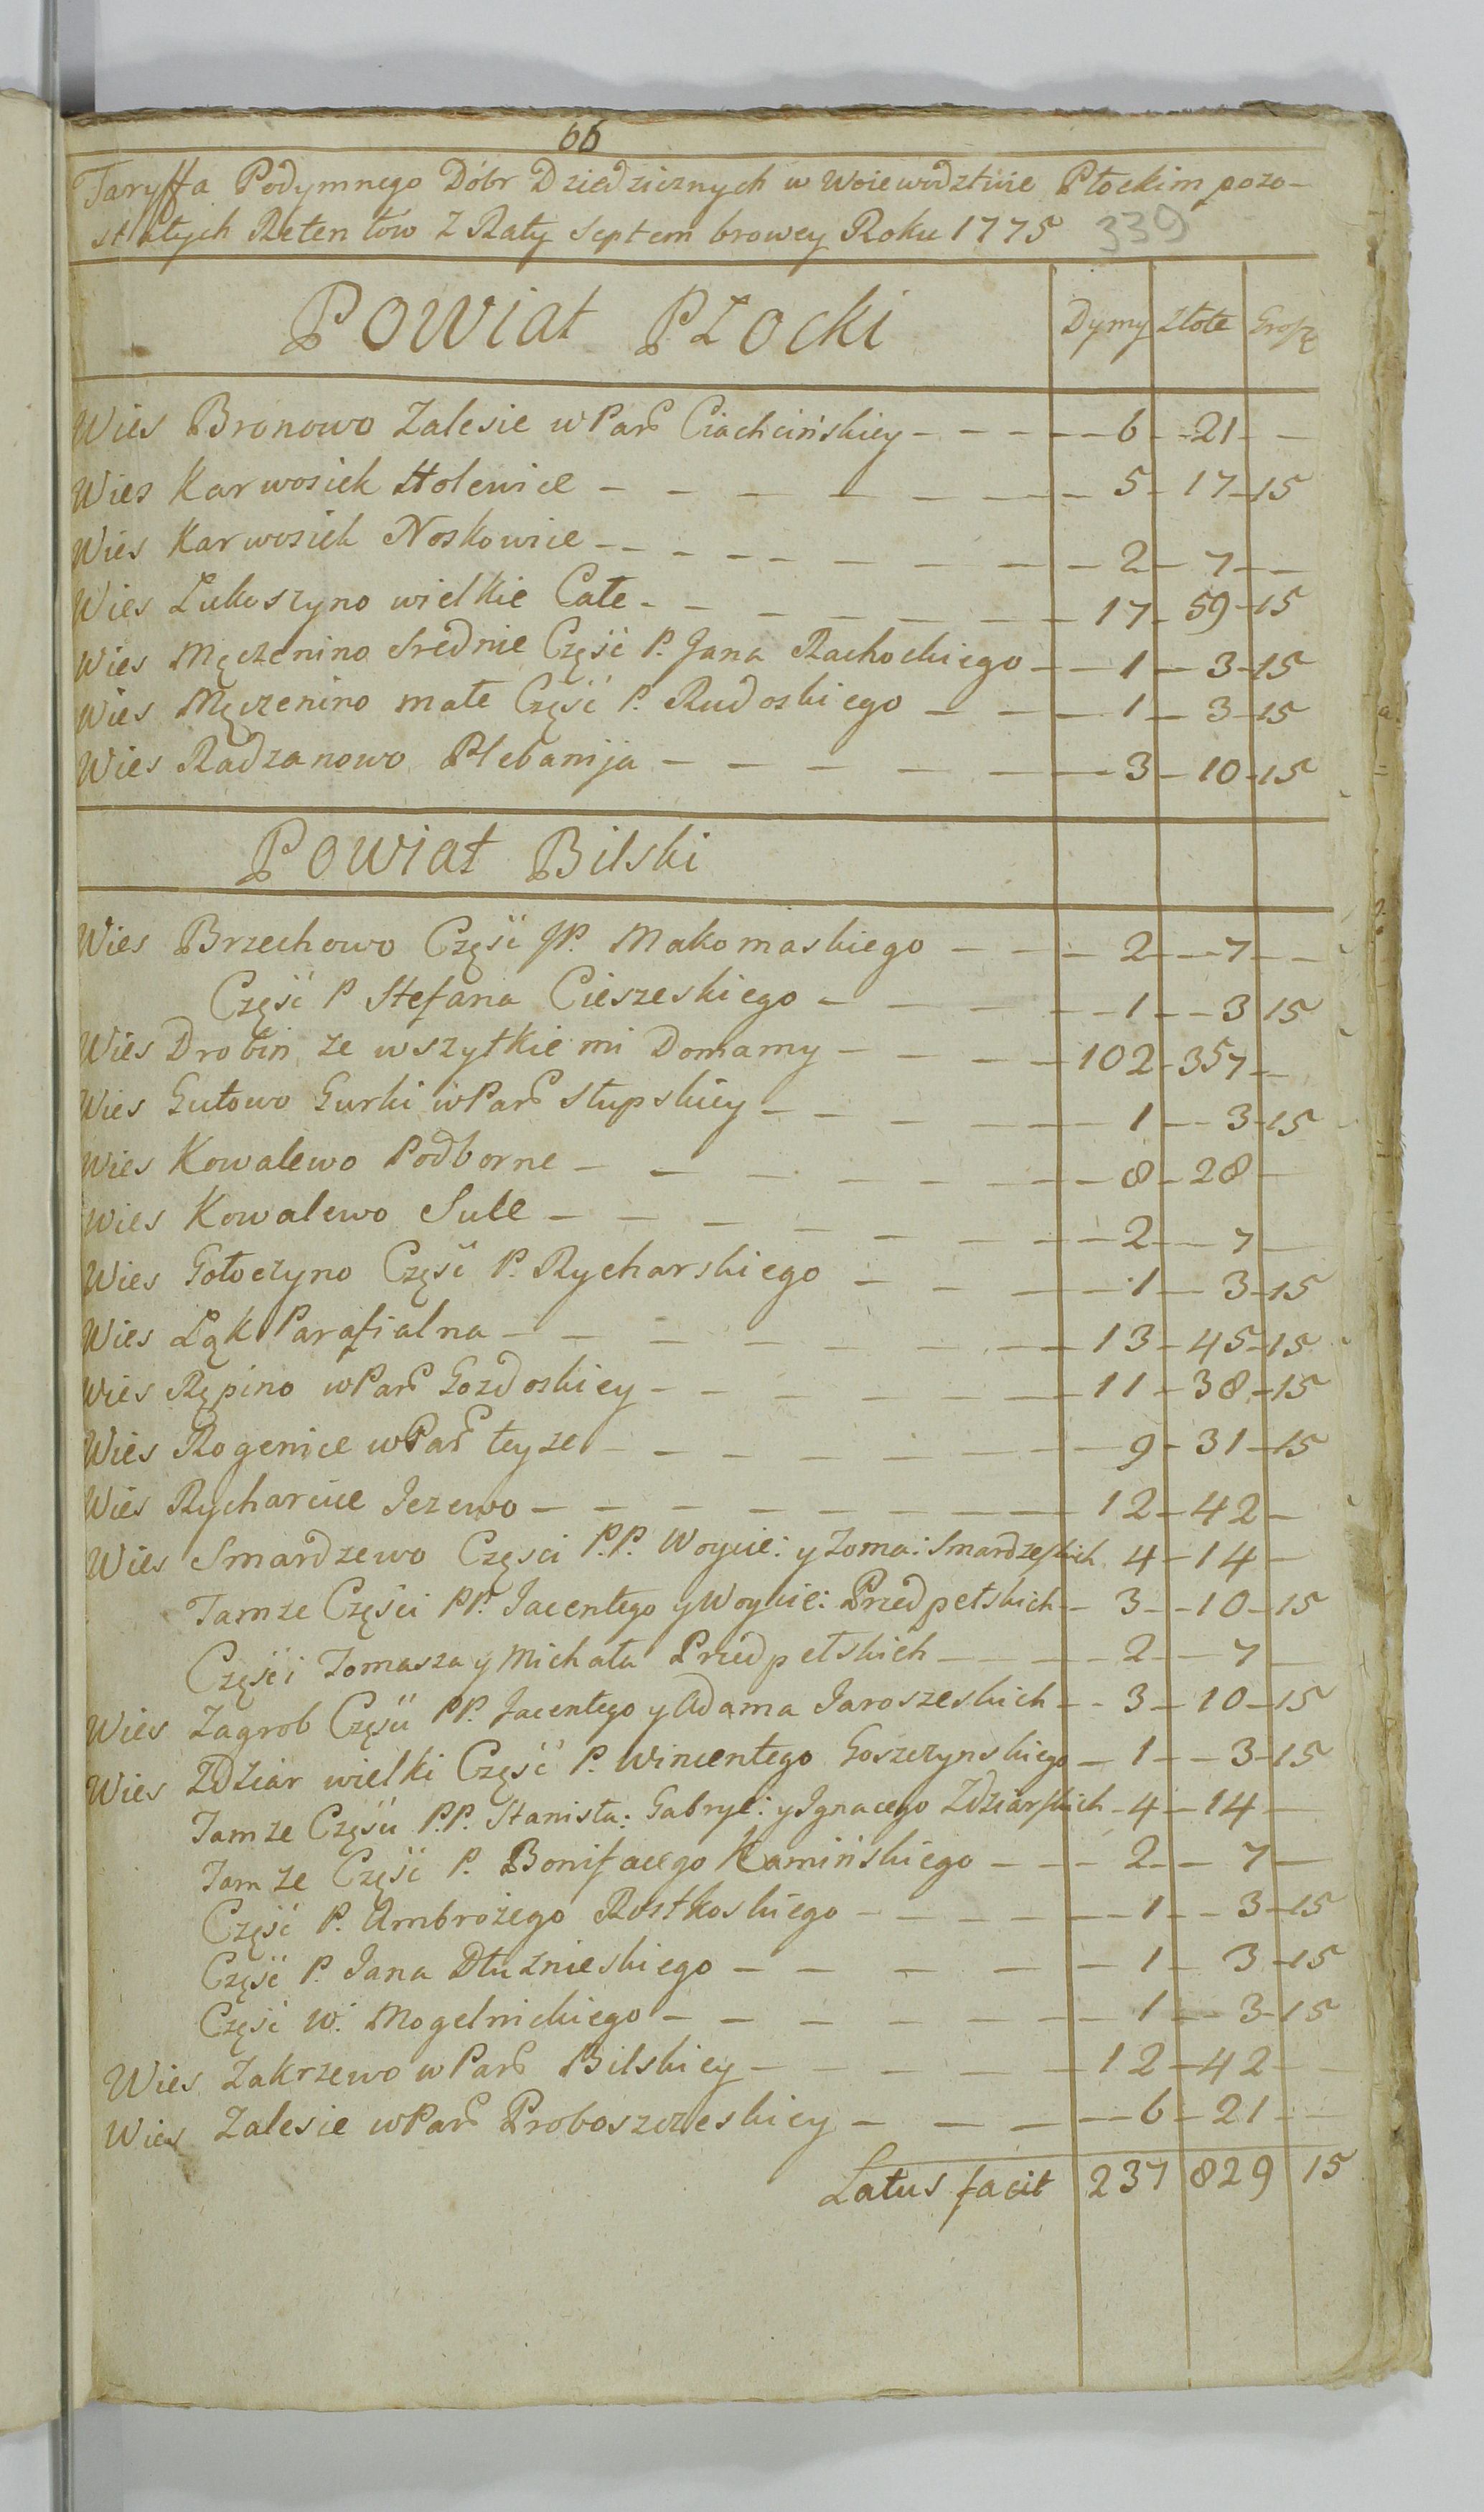 66
Taryffa Podymnego Dóbr Dziedzicznych w Woiewodztwie Płockim pozo-
stałych Retentow z Raty Septembrowey Roku 1775 339
Powiat Płocki Dymy Złote Grosze
Wies Bronowo Zalesie w Par Ciachcińskiey - - - - - 6 - 21 - -
Wies Karwosiek Holewice - - - - - - - 5 - 17 - 15
Wies Karwosiek Noskowice - - - - - - - 2 - 7 - -
Wies Łukoszyno wielkie Całe - - - - - - 17 - 59 - 15
Wies Męczenino Srednie Część P. Jana Rachockiego - - 1 - 3 - 15
Wies Męczenino małe Część P. Rudoskiego - - - 1 - 3 - 15
Wies Radzanowo Plebanija - - - - - - 3 - 10 - 15
Powiat Bilski
Wies Brzechowo Część JP. Makomaskiego - - - 2 - - 7 - -
Część P Stefana Cieszeskiego - - - - - 1 - - 3 15
Wies Drobin ze wszytkiemi Domamy - - - - 102 - 357 -
Wies Gutowo Gurki w Par Słupskiey - - - - - 1 - - 3 - 15
Wies Kowalewo Podborne - - - - - - - 8 - 28 -
Wies Kowalewo Sule - - - - - - - - 2 - - 7 -
Wies Gołoczyno Część P. Rycharskiego - - - - - 1 - - 3 - 15
Wies Łąk Parafialna - - - - - - - 13 - 45 - 15
Wies Rępino w Par Gozdoskiey - - - - - - - 11 - 38 - 15
Wies Rogenice w Par teyze - - - - - - - 9 - 31 - 15
Wies Rycharcice Jezewo - - - - - - - - 12 - 42 -
Wies Smardzewo Częsci P.P. Woycie: y Toma: Smardzeskich 4 - 14 -
Tamze Części PP. Jacentego y Woycie: Przedpełskich - 3 - - 10 - 15
Części Tomasza y Michała Przedpełskich - - - - 2 - - 7 -
Wies Zagrob Części PP. Jacentego y Adama Jaroszeskich - - 3 - 10 - 15
Wies Zdziar wielki Część P. Wincentego Goszczynskiego - 1 - - 3 - 15
Tamze Części P.P. Stanisła: Gabrye: y Ignacego Zdziarskich - 4 - 14 -
Tamze Część P. Bonifacego Kamińskiego - - - 2 - - 7 -
Część P. Ambrożego Rostkoskiego - - - - - 1 - - 3 - 15
Część P. Jana Dłuznieskiego - - - - - - 1 - 3 - 15
Część W. Mogelnickiego - - - - - - - 1 - - 3 - 15
Wies Zakrzewo w Par Bilskiey - - - - - 12 - 42 -
Wies Zalesie w Par Proboszczeskiey - - - - - 6 - 21 - -
Latus facit 237 829 15